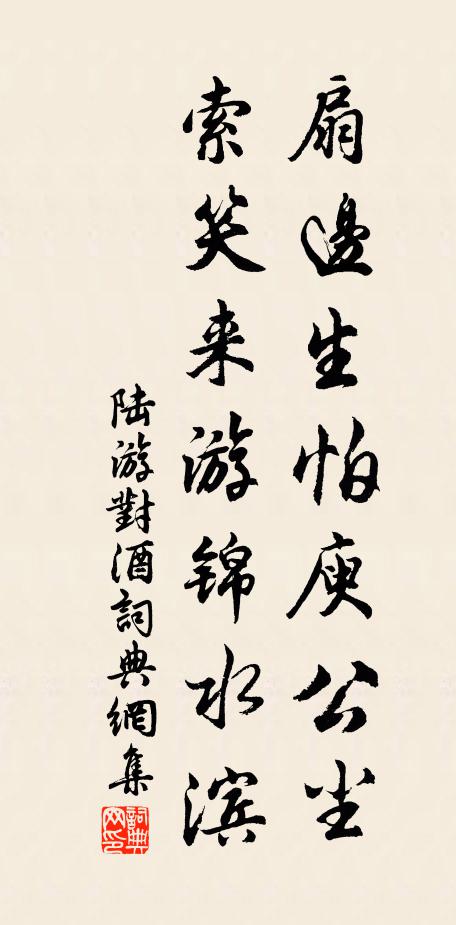 扇邊生怕庾公尘
索笑来游锦水滨
陆游對酒詞典網集
詞典网印